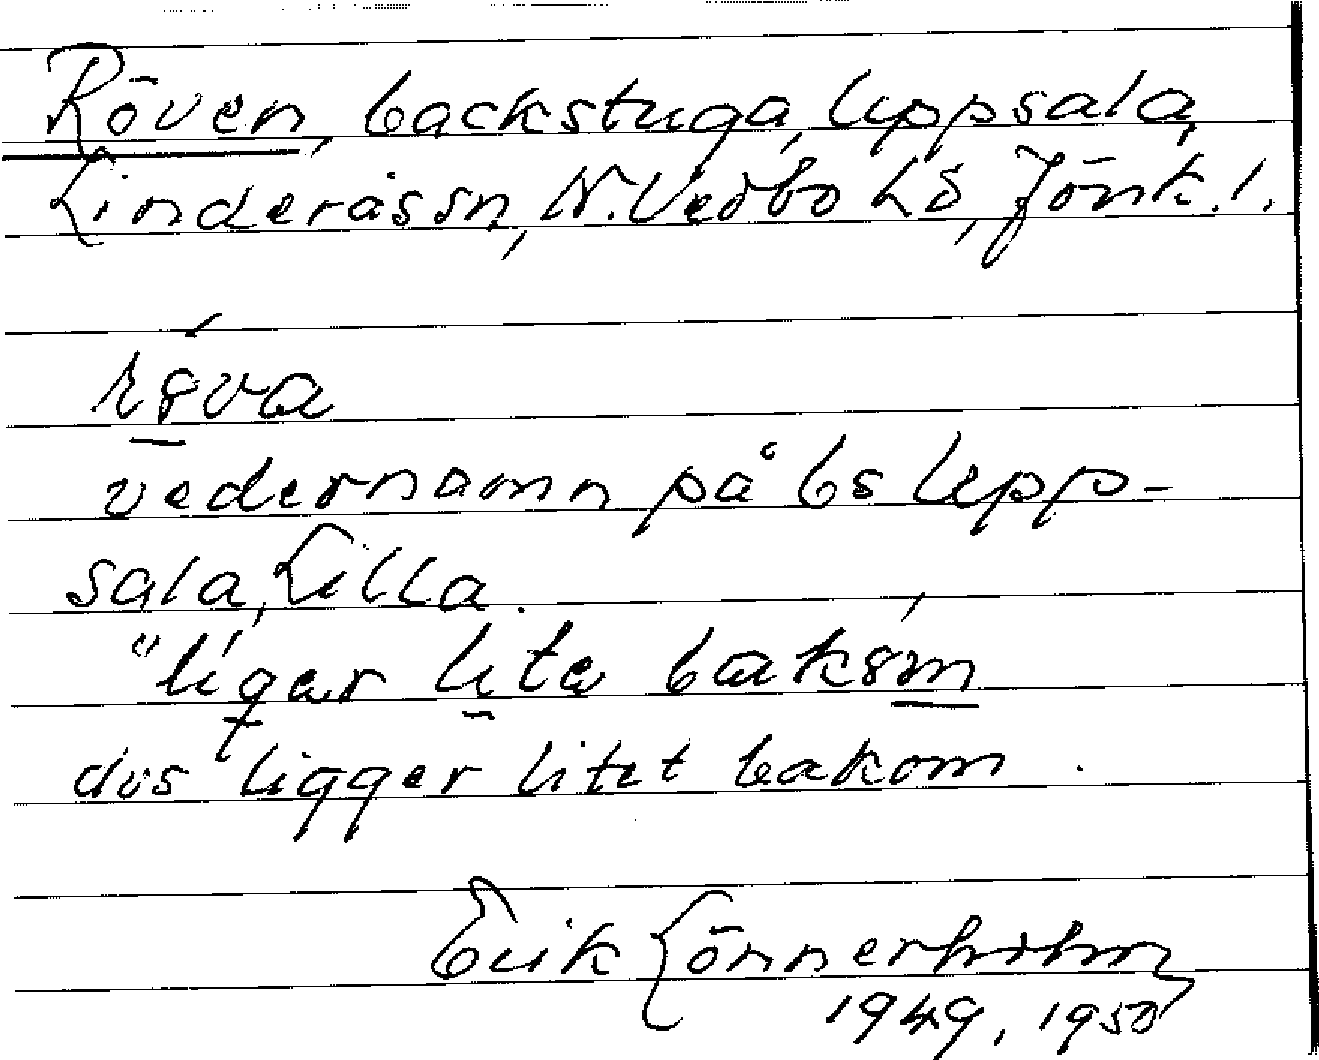 Röven, backstuga, Uppsala,
Linderås sn, N. Vedbo hd, Jönk. l.
röva
vedernamn på bs Upp-
sala, Lilla.
"liger lite bakom
dvs ligger litet bakom.
Erik Lönnerholm
1949, 1950